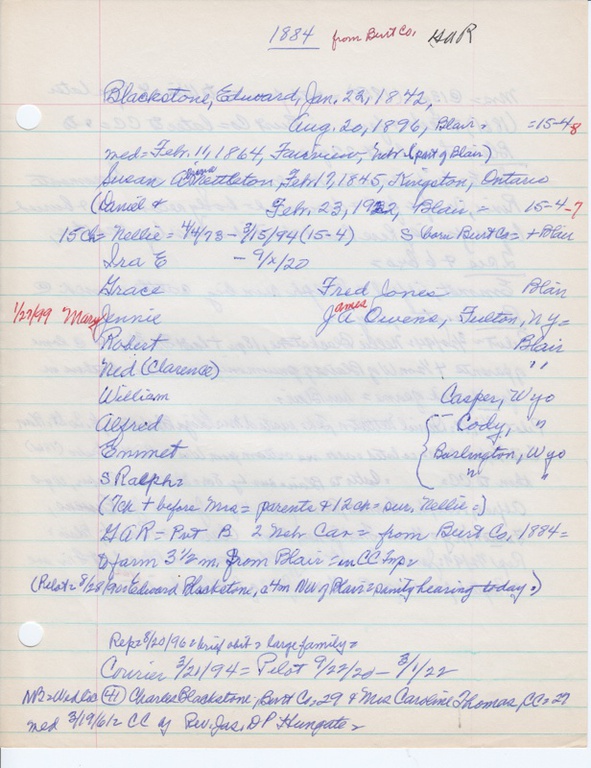 1884 from Burt Co. GAR
Blackstone, Edward, Jan. 22, 1842,
Aug. 20, 1896, Blair = =15-4-8
med = Feb. 11, 1864, Fairview, Nebr (part of Blair)
Susan Nettleton, Feb 17, 1845, Kingston, Ontario
(Daniel & Feb. 23, 1922, Blair = 15-4-7
15 ch = Nellie = 4/4/73 - 3/15/94 (15-4) S born Burt Co = + Blair
Ira E - 9/x/20
Grace Fred Jones Blair
1/27/99 Mary Jennie James A Owens, Fulton, NY =
Robert Blair
Ned (Clarence) "
William Casper, Wyo
Alfred Cody, "
Emmet Burlington, Wyo
S Ralph = " "
(7 ch + before Mrs = parents & 12 ch = sur. Nellie =)
GAR = Pvt B 2 Neb Cav = from Burt Co. 1884 =
to farm 3 1/2 m. from Blair = in CC
(Pilot = 8/28/90 = Edward Blackstone, a 4m NW of Blair = sanity hearing today =)
Rep = 8/20/96 = brief obit = large family =
Courier 3/21/94 = Pilot 9/22/20 - 3/1/22
NB = Wed Lic (41) Charles Blackstone - Burt Co = 29 & Mrs Caroline Thomas, CC = 27
med 3/19/61 = CC by Rev. Jas. DP Hungate =